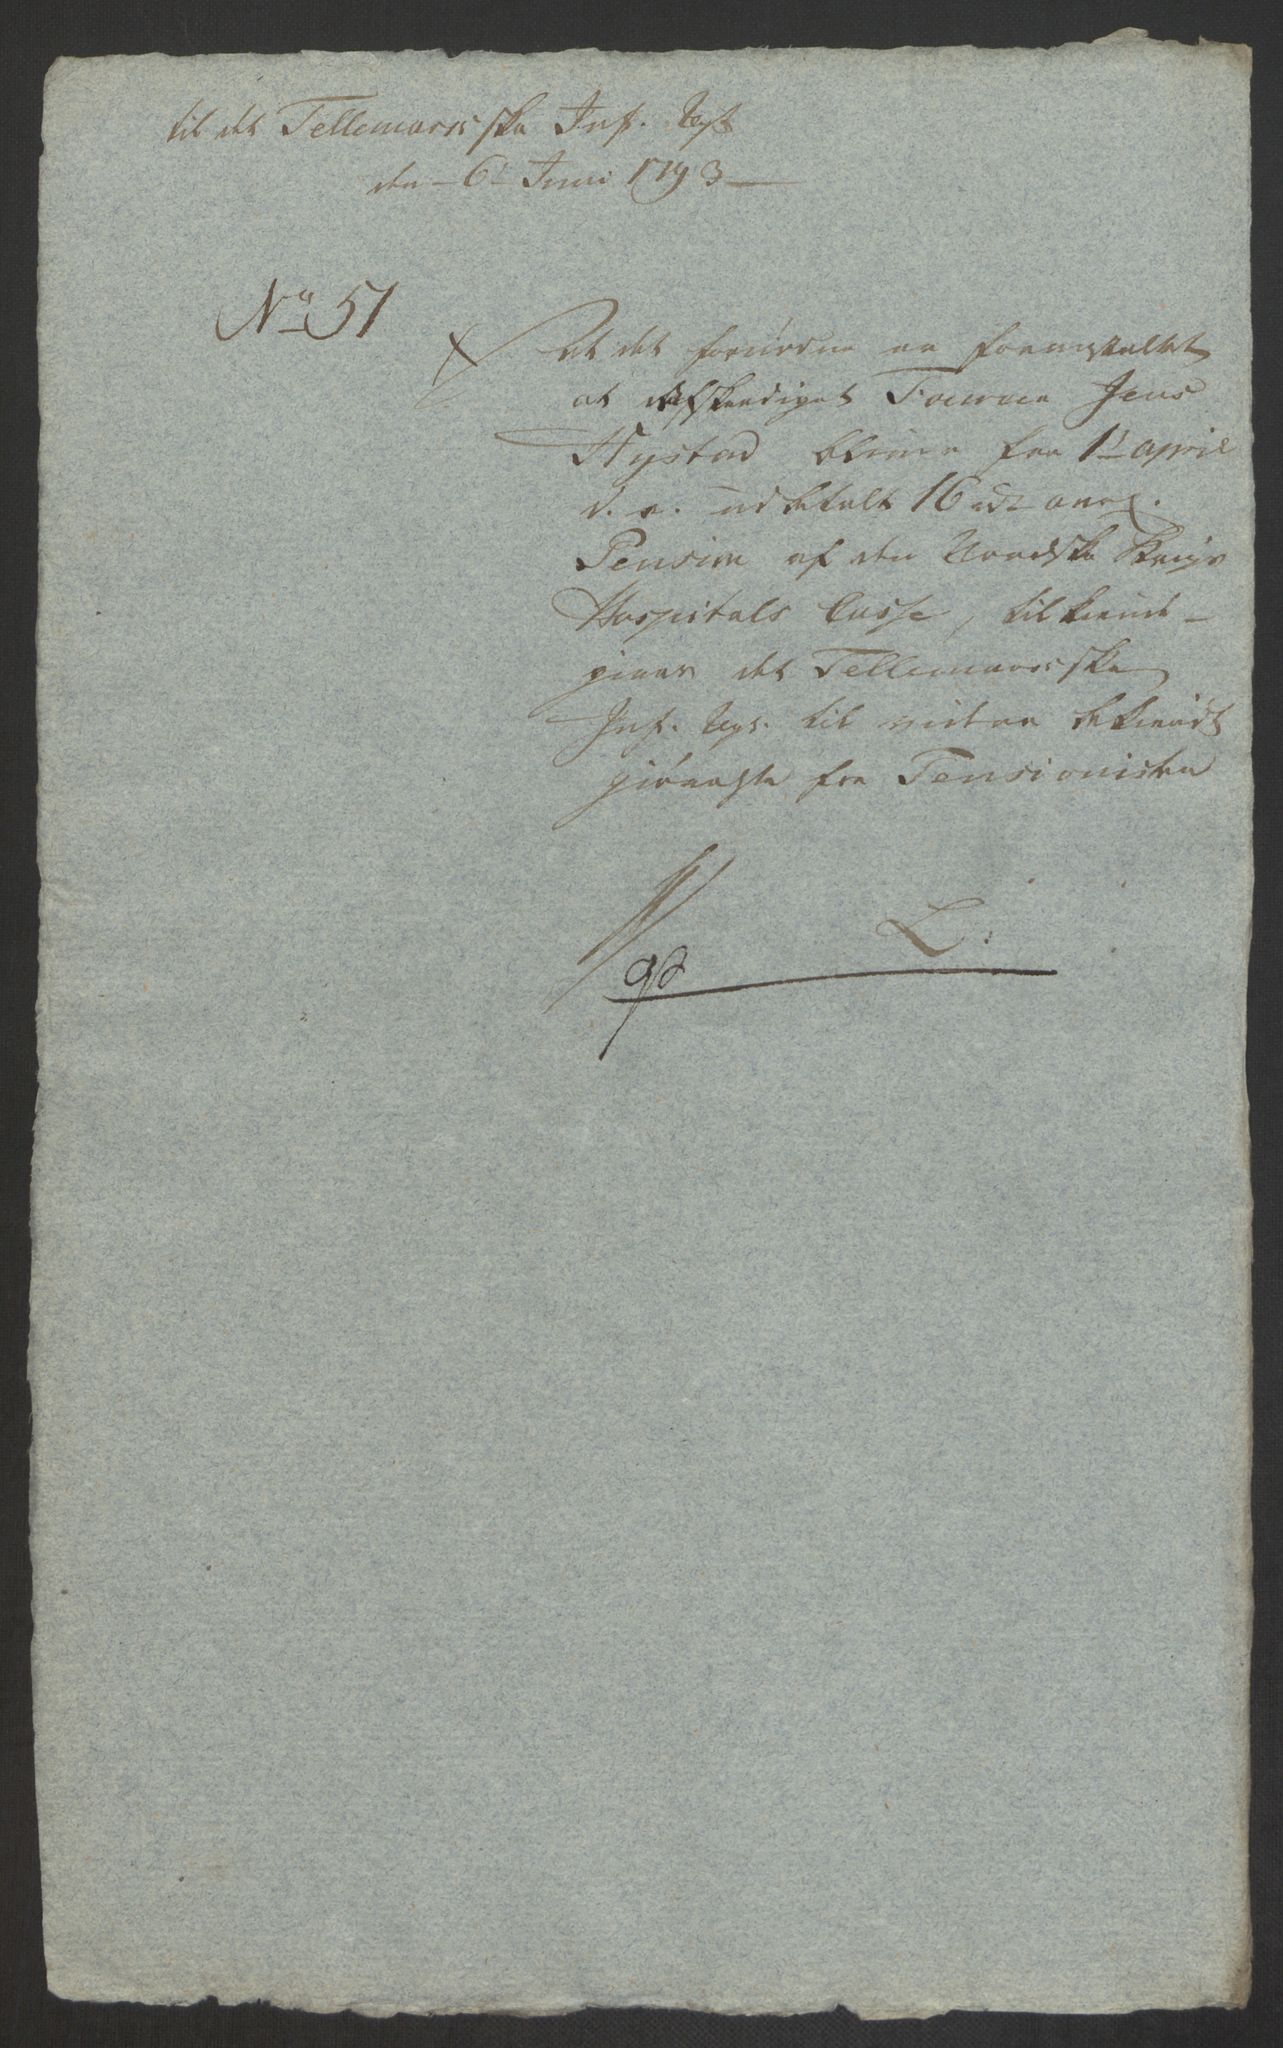 til det Tellemarcske Inf. Regt
den 6t Juni 1793
No 51
At det fornødne er foranstaltet
at afskediget Fourer Jens
Nystad bliver fra 1t April
d. A. udbetalt 16 rd aarl.
Pension af den Nordske Krigs
Hospitals Casse, tilkiende-
gives det Tellemarcske
Inf. Reg. til videre bekiendt
giørelse for Pensionisten
L.